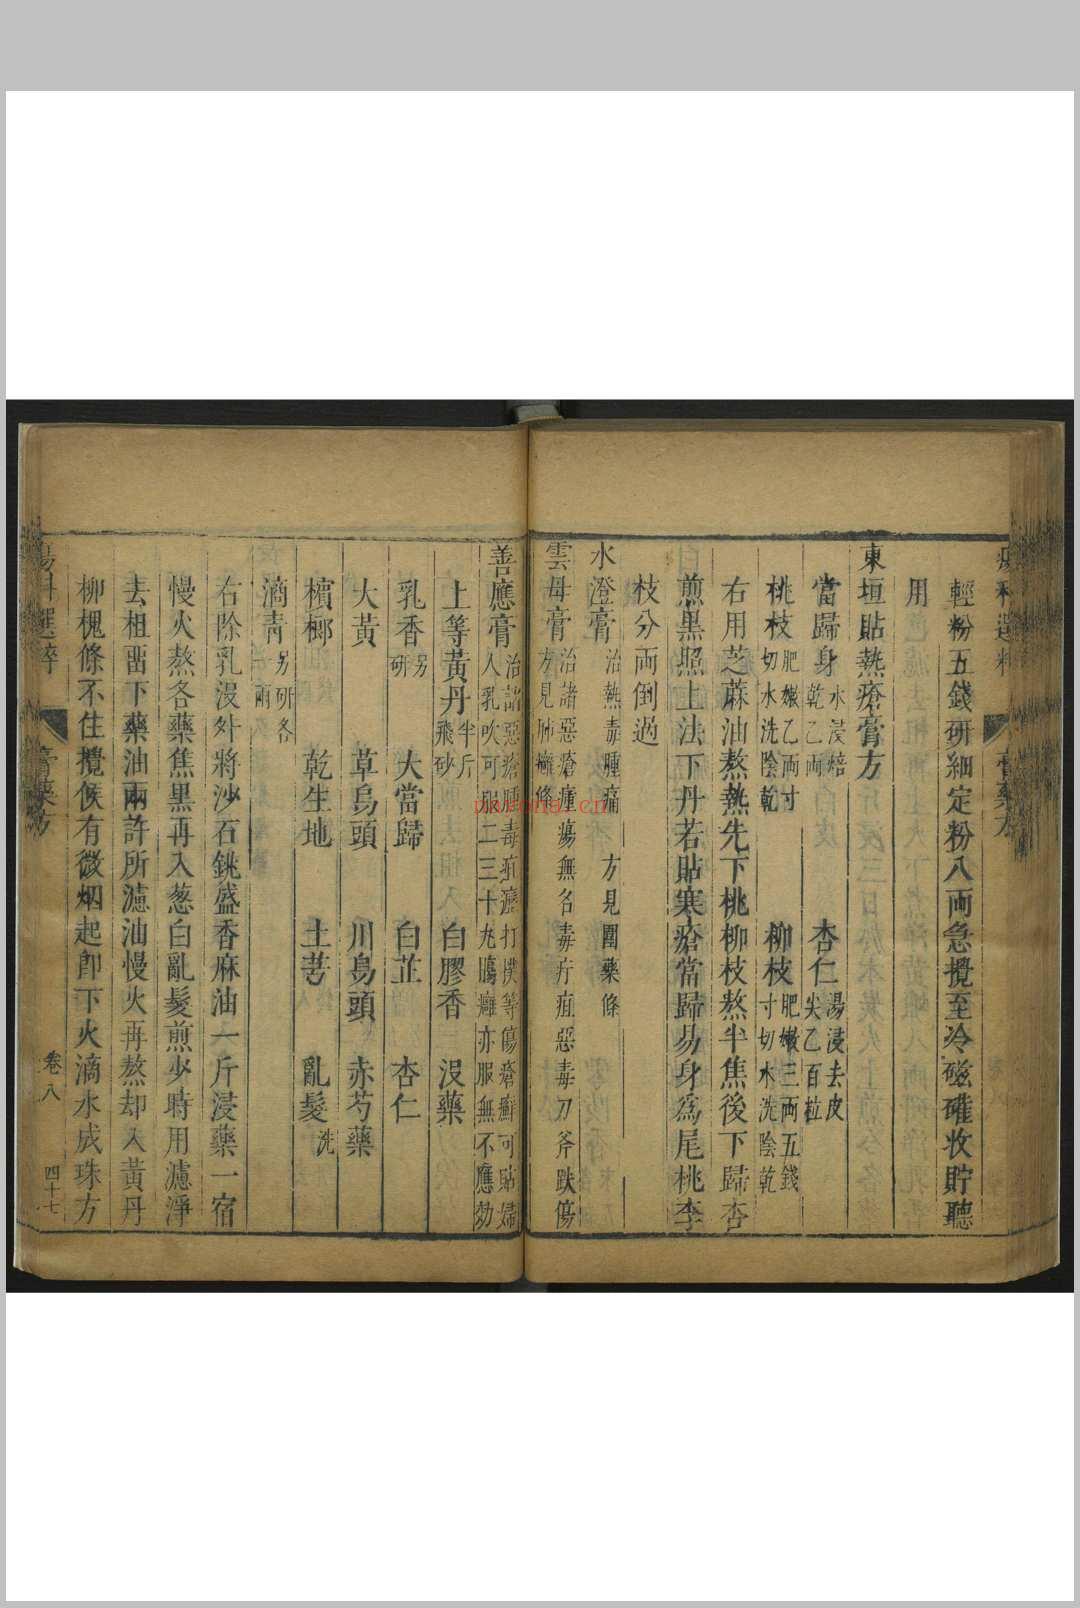 輕粉五錢研細定粉八両急攪至冷磁確收貯聽
用
東垣貼熱瘡膏方
當歸身水浸焙乾乙両 杏仁湯浸去皮尖乙百粒
桃枝肥嫩乙両寸切水洗陰乾 柳枝肥嫩三両五錢寸切水洗陰乾
右用芝蔴油熬熱先下桃柳枝熬半焦後下歸杏
煎黒照上法下丹若貼寒瘡當歸易身為尾桃李
枝分両倒過
水澄膏治熱毒腫痛 方見圍藥條
雲母膏治諸惡瘡瘇瘍無名毒疔疽惡毒刀斧跌傷方見肺癰條
善應膏治諸惡瘡腫毒疽瘡打撲等傷瘡癬可貼婦人乳吹可服二三十丸腸癰亦服無不應効
上等黃丹半斤飛砂 白膠香 沒藥
乳香另研 大當歸 白芷 杏仁
大黃 草烏頭 川烏頭 赤芍藥
檳榔 乾生地 土芎 亂髮洗
滴青另研各両
右除乳沒外將沙石銚盛香麻油一斤浸藥一宿
慢火熬各藥焦黒再入葱白亂髮煎少時用濾淨
去柤畱下藥油兩許所濾油慢火再熬却入黃丹
柳槐條不住攪候有微烟起卽下火滴水成珠方
瘍科選粹 膏藥方 卷八 四十七